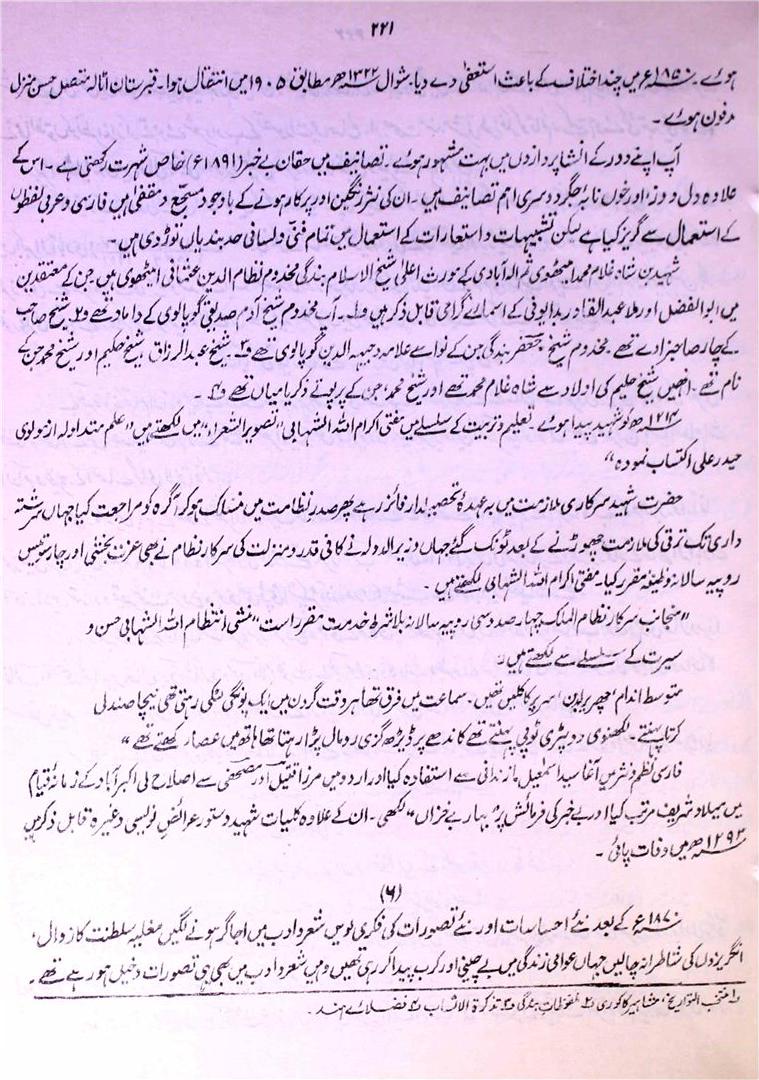 ۲۲۱
ہوئے۔ ۱۸۷۰ء میں چند اختلاف کے باعث استعفیٰ دے دیا۔ شوال ۱۳۲۲ھ مطابق ۱۹۰۵ میں انتقال ہوا۔ قبرستان اٹالہ متصل حسن منزل
مدفون ہوئے۔
آپ اپنے دور کے انشا پردازوں میں بہت مشہور ہوئے۔ تصانیف میں حقان بے خبر (۱۸۹۱ء) خاص شہرت رکھتی ہے۔ اس کے
علاوہ دل دوز اور خوں نابۂ جگر دوسری اہم تصانیف ہیں۔ ان کی نثر رنگین اور پرکار ہونے کے باوجود مسجع و مقفیٰ ہیں فارسی و عربی لفظوں
کے استعمال سے گریز کیا ہے لیکن تشبیہات و استعارات کے استعمال میں تمام فنی و لسانی حد بندیاں توڑ دی ہیں۔
شہید بن شاہ غلام محمد امیٹھوی ثم الہ آبادی کے مورث اعلیٰ شیخ الاسلام بندگی مخدوم نظام الدین عثمانی امیٹھوی ہیں جن کے معتقدین
میں ابوالفضل اور ملا عبدالقادر بدایونی کے اسمائے گرامی قابل ذکر ہیں ف۱۔ آپ مخدوم شیخ آدم صدیقی گوپالوی کے داماد تھے ف۲ شیخ صاحب
کے چار صاحبزادے تھے۔ مخدوم شیخ جعفر بندگی جن کے نواسے علامہ وجیہہ الدین گوپالوی تھے ف۳۔ شیخ عبدالرزاق شیخ حلیم اور شیخ محمد جن کے
نام تھے۔ انہیں شیخ حلیم کی اولاد سے شاہ غلام محمد تھے اور شیخ محمد، جن کے پر پوتے ذکریا میاں تھے ف۴۔
۱۲۱۴ھ کو شہید پیدا ہوئے۔ تعلیم و تربیت کے سلسلے میں مفتی اکرام اللہ الشہابی "تصویر الشعراء" میں لکھتے ہیں "علم متداولہ از مولوی
حیدر علی اکتساب نمودہ"
حضرت شہید سرکاری ملازمت میں بہ عہدۂ تحصیلدار فائز رہے پھر صدر نظامت میں منسلک ہو کر آگرہ کو مراجعت کیا جہاں سررشتہ
داری تک ترقی کی ملازمت چھوڑنے کے بعد ٹونک گئے جہاں وزیر الدولہ نے کافی قدر و منزلت کی سرکار نظام نے بھی عزت بخشی اور چار سو تیس
روپیہ سالانہ وظیفہ مقرر کیا۔ مفتی اکرام اللہ الشہابی لکھتے ہیں۔
"منجانب سرکار نظام الملک چہار صد و سی روپیہ سالانہ بلا شرط خدمت مقرر است" منشی انتظام اللہ الشہابی حسن و
سیرت کے سلسلے سے لکھتے ہیں۔
متوسط اندام چھریرا بدن سر پر کاکلیں تھیں۔ سماعت میں فرق تھا ہر وقت گردن میں ایک پونگی لٹکی رہتی تھی نیچا صندلی
کرتا پہنتے۔ لکھنوی دو پٹری ٹوپی پہنتے تھے کاندھے پر بڑھ گزی رومال پڑا رہتا تھا ہاتھ میں عصا رکھتے تھے"
فارسی نظم و نثر میں آغا سید اسمٰعیل مازندانی سے استفادہ کیا اور اردو میں مرزا قتیل اور مصحفی سے اصلاح لی اکبر آباد کے زمانۂ قیام
میں میلاد شریف مرتب کیا اور بے خبر کی فرمائش پر "بہار بے خزاں" لکھی۔ ان کے علاوہ کلیات شہید دستور عرائض نویسی وغیرہ قابل ذکر ہیں
۱۲۹۳ھ میں وفات پائی۔
(۶)
۱۸۷۰ء کے بعد نئے احساسات اور نئے تصورات کی فکری لویں شعر و ادب میں اجاگر ہونے لگیں مغلیہ سلطنت کا زوال،
انگریزوں کی شاطرانہ چالیں جہاں عوامی زندگی میں بے چینی اور کرب پیدا کر رہی تھیں وہیں شعر و ادب میں بھی یہی تصورات دخیل ہو رہے تھے۔
ف۱ منتخب التواریخ، مشاہیر کاکوری ف۲ ملفوظات بندگی ف۳ تذکرۃ الانساب ف۴ فضلائے ہند۔